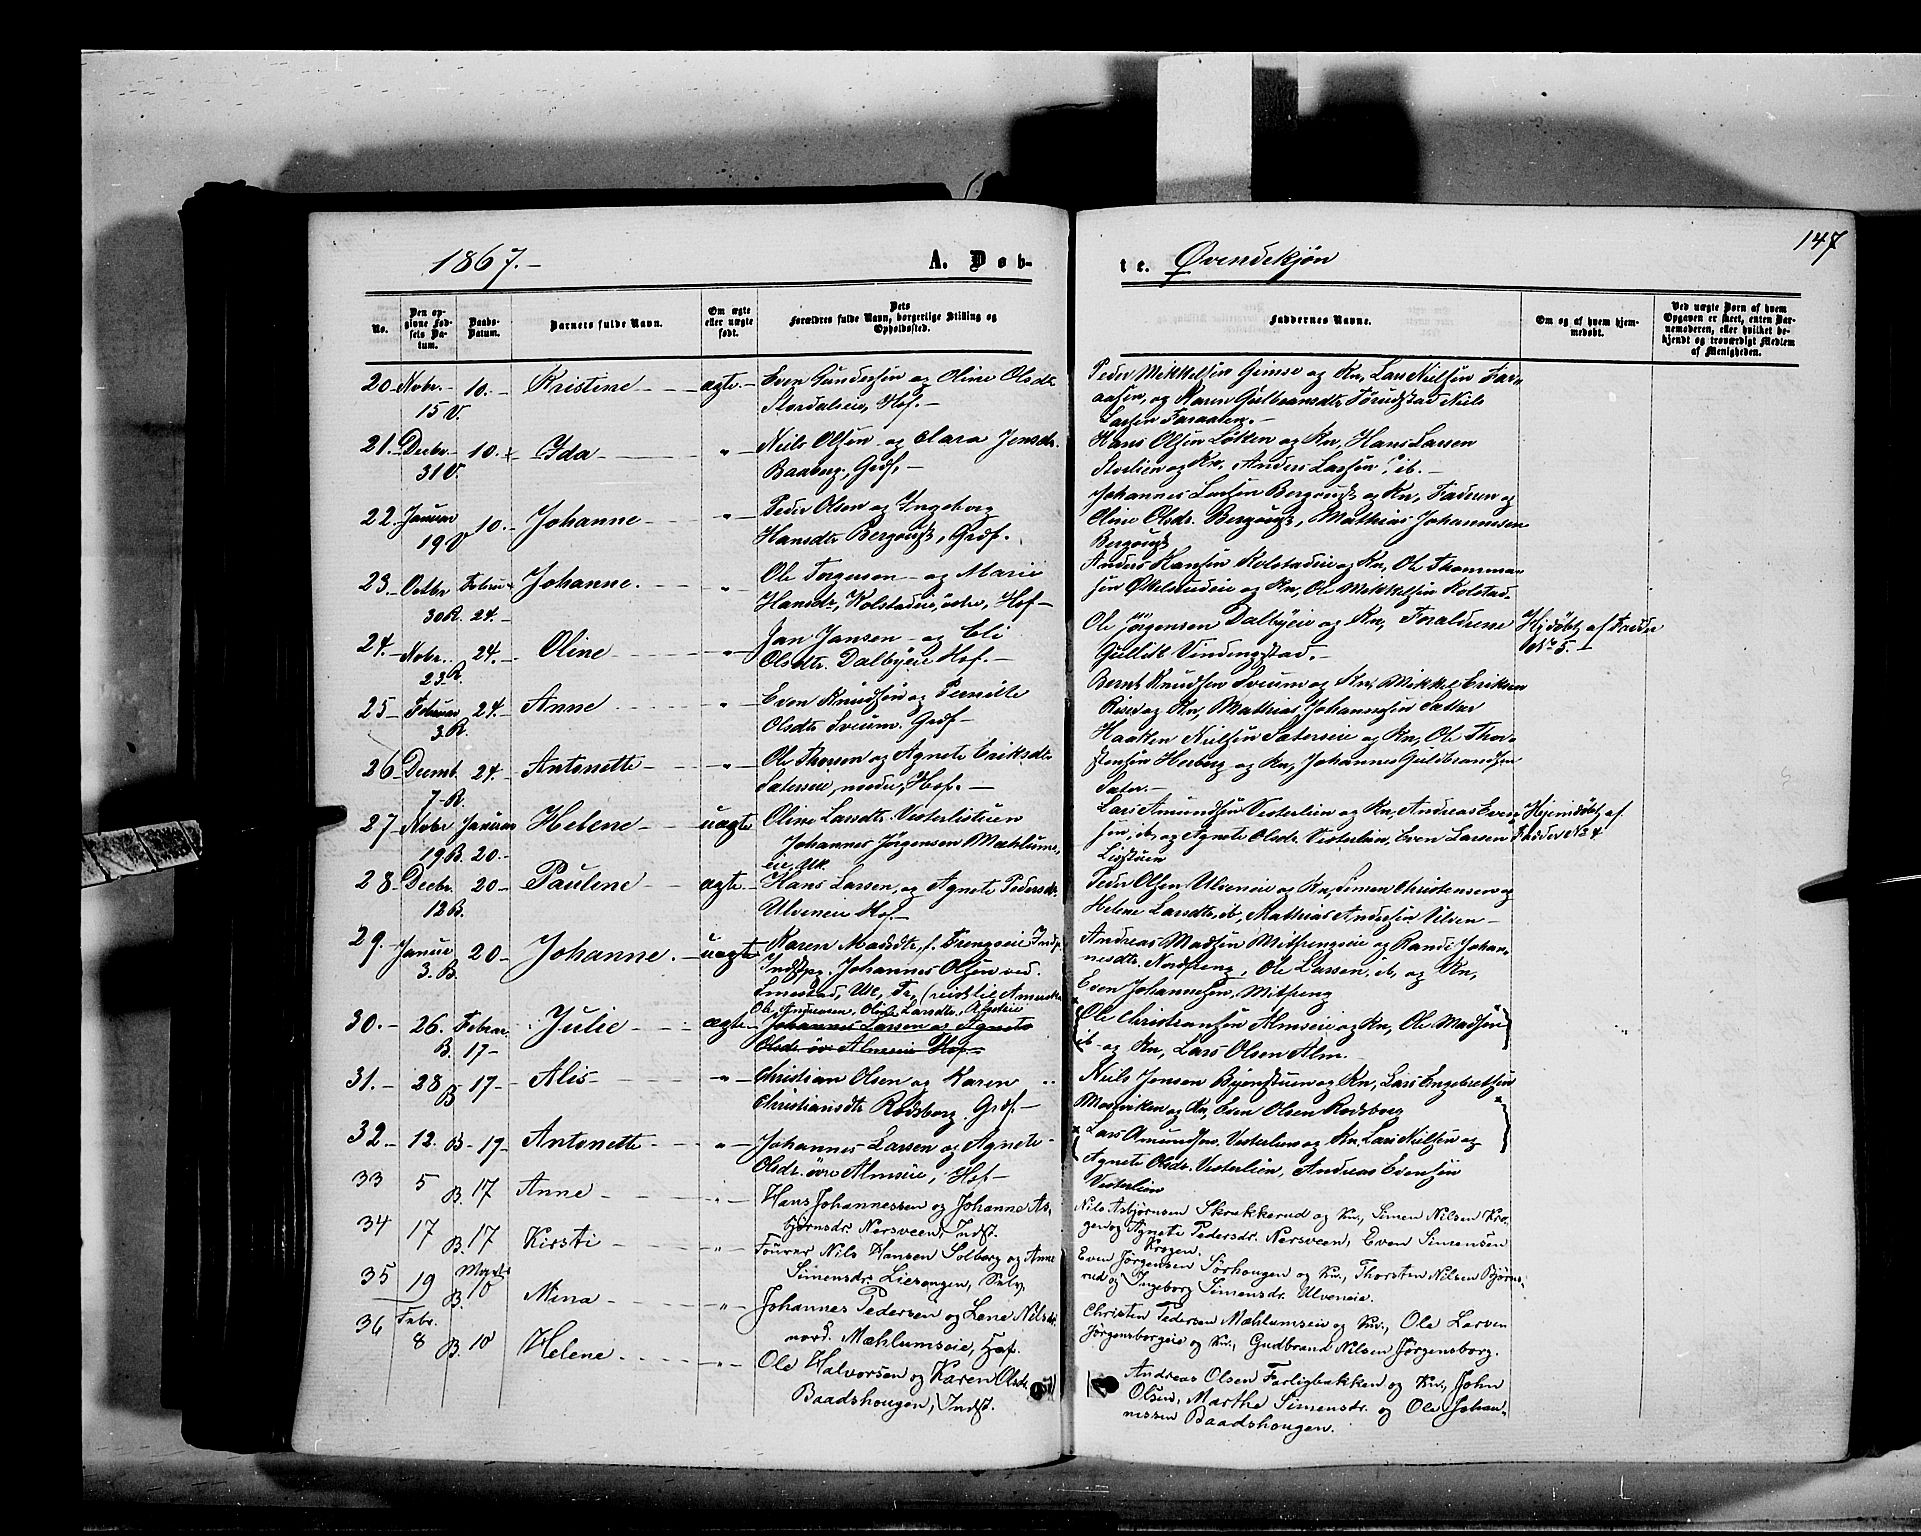 147
1867.-
A. Døb-
te. Qvindekjøn
No.
Den opgivne Fødsels Datum.
Daabs-Datum.
Barnets fulde Navn.
Om ægte eller uægte født.
Dets Forældres fulde Navn, borgerlige Stilling og Opholdssted.
Faddernes Navne.
Om og af hvem hjemmedøbt.
Ved uægte Børn af hvem Opgaven er skeet, enten Barnemoderen, eller hvilket bekjendt og troværdigt Medlem af Menigheden.
20 Novbr. 15 V. 10.- Kristine ægte Even Gundersen og Oline Olsdtr.
Stordalseie, Hof.-
Peder Mikkelsen Gimse og Kn, Lars Nielsen Far-
aasen, og Karen Gulbransdtr. Niels
Larsen Faraasen.-
21. Decbr. 31 V. 10. Ida " Niels Olsen og Clara Jensdtr.
Baaberg, Grdf.-
Hans Olsen Løken og Kn, Hans Larsen
og Kn, Anders Larsen ib.-
22. Januar 19 V 10.- Johanne " Peder Olsen og Ingeborg
Hansdtr. Bergougst, Grdf.
Johannes Larsen Bergougst og Kn, Faderen og
Oline Olsdr. Bergougst, Mathias Johannesen
Bergougst
23. Octbr 30 R. Febru 24.- Johanne. " Ole Torgersen og Marie
Hansdtr, Kolstadeie, Hof-
Anders Hansen Kolstadeie og Kn, Ole Thomma-
sen og Kn, Ole Mikkelsen Kolstad.
24. Novbr. 23. R. 24.- Oline " Jan Jansen og Eli
Olsdtr. Dalbyeie Hof.-
Ole Jørgensen Dalbyeie og Kn, Forældrene
Gullik Vindingstad.-
Hjdøbt af Fadder
No 5.
25 Februar 3. R. 24.- Anne " Even Knudsen og Pernille
Olsdtr Sveum. Grdf-
Bernt Knudsen Sveum og Kn, Mikkel Eriksen
Risev og Kn, Mathias Johannesen Sætter
26 Decmb. 7 R. 24.- Antonette " Ole Thorsen og Agnete Eriksdtr
Sæterseie, nordre, Hof.-
Haaken Nielsen Sæterseie og Kn, Ole Thor-
stensen Horberg og Kn, Johannes Guldbrandsen
Sæter.-
27 Novbr 19 B. Januar 20.- Helene uægte Oline Larsdtr. Vesterlistuen
Johannes Jørgensen Mæhlums-
eie, Uk.
Lars Amundsen Vesterlien og Kn, Andreas Even-
sen, ib, og Agnete Olsdr. Vesterlien, Even Larsen
Listuen
Hjemdøbt af
Fadder No 4
28 Decbr. 12 B. 20- Pauline ægte Hans Larsen, og Agnete Pedersdtr.
Ulveneie Hof-
Peder Olsen Ulveneie og Kn, Simen Christensen og
Helene Larsdtr. ib, Mathias Andersen Ulven-
29. Januar 3. B. 20- Johanne. uægte Karen Madsdtr. f. Frengseie Indst.
Indstpg. Johannes Olsen ved.
Smestad, Uk, Fr, (reist til Amerika
Andreas Madsen Mitfrengseie og Randi Johan-
nesdtr. Nordfreng, Ole Larsen, ib, og Kn,
Even Johannesen, Mitfreng
30.- 26. B. Februar 17- Julie ægte Ole Andersen, Oline Larsdtr. Almseie
Johannes Larsen og Agnete
Olsdr. øvr Almseie Hof-
Ole Christiansen Almseie og Kn, Ole Madsen
ib- og Kn, Lars Olsen Alm.
31.- 28 B 17- Alis- " Christian Olsen og Karen
Christiansdtr Rodsberg. Grdf.-
Niels Jensen Bjønstuen og Kn, Lars Engebretsen
Mosviken og Kn, Even Olsen Rodsberg
32- 12. B- 17- Antonette " Johannes Larsen og Agnete
Olsdr. øvre Almseie, Hof-
Lars Amundsen. Vesterlien og Kn. Lars Nielsen og
Agnete Olsdr. Vesterlien, Andreas Evensen
Vesterlien
33 5 B. 17 Anne " Hans Johannessen og Johanne As-
bjørnsdr. Nersveen, Indst.
Nils Asbjørnsen Skrækkerud og Kn., Simen Nilsen Kro-
gen og Agnete Pedersdr. Nersveen, Even Simensen
Krogen.
34 17 B. 17 Kirsti " Tourer Nils Hansen Solberg og Anne
Simensdr. Liesougen, Selv.
Even Jørgensen Sørhougen og Kn., Thorsten Nilsen Bjørns-
rud og Ingeborg Simensdr. Ulveneie.
35 19 B. Marts 10 Mina " Johannes Pedersen og Lene Nilsdtr
nord. Mæhlumseie, Hof.
Christen Pedersen Mæhlumseie og Kn., Ole Larsen
Jørgensborgeie og Kn., Gudbrand Nilsen Jørgensborg.
36 Febr. 8 B. 10 Helene " Ole Halvorsen og Karen Olsdr.
Baadshougen, Indst.
Andreas Olsen Farligbakken og Kn., John
Olsen, Marthe Simensdr. og Ole Johan-
nessen Baadshougen.